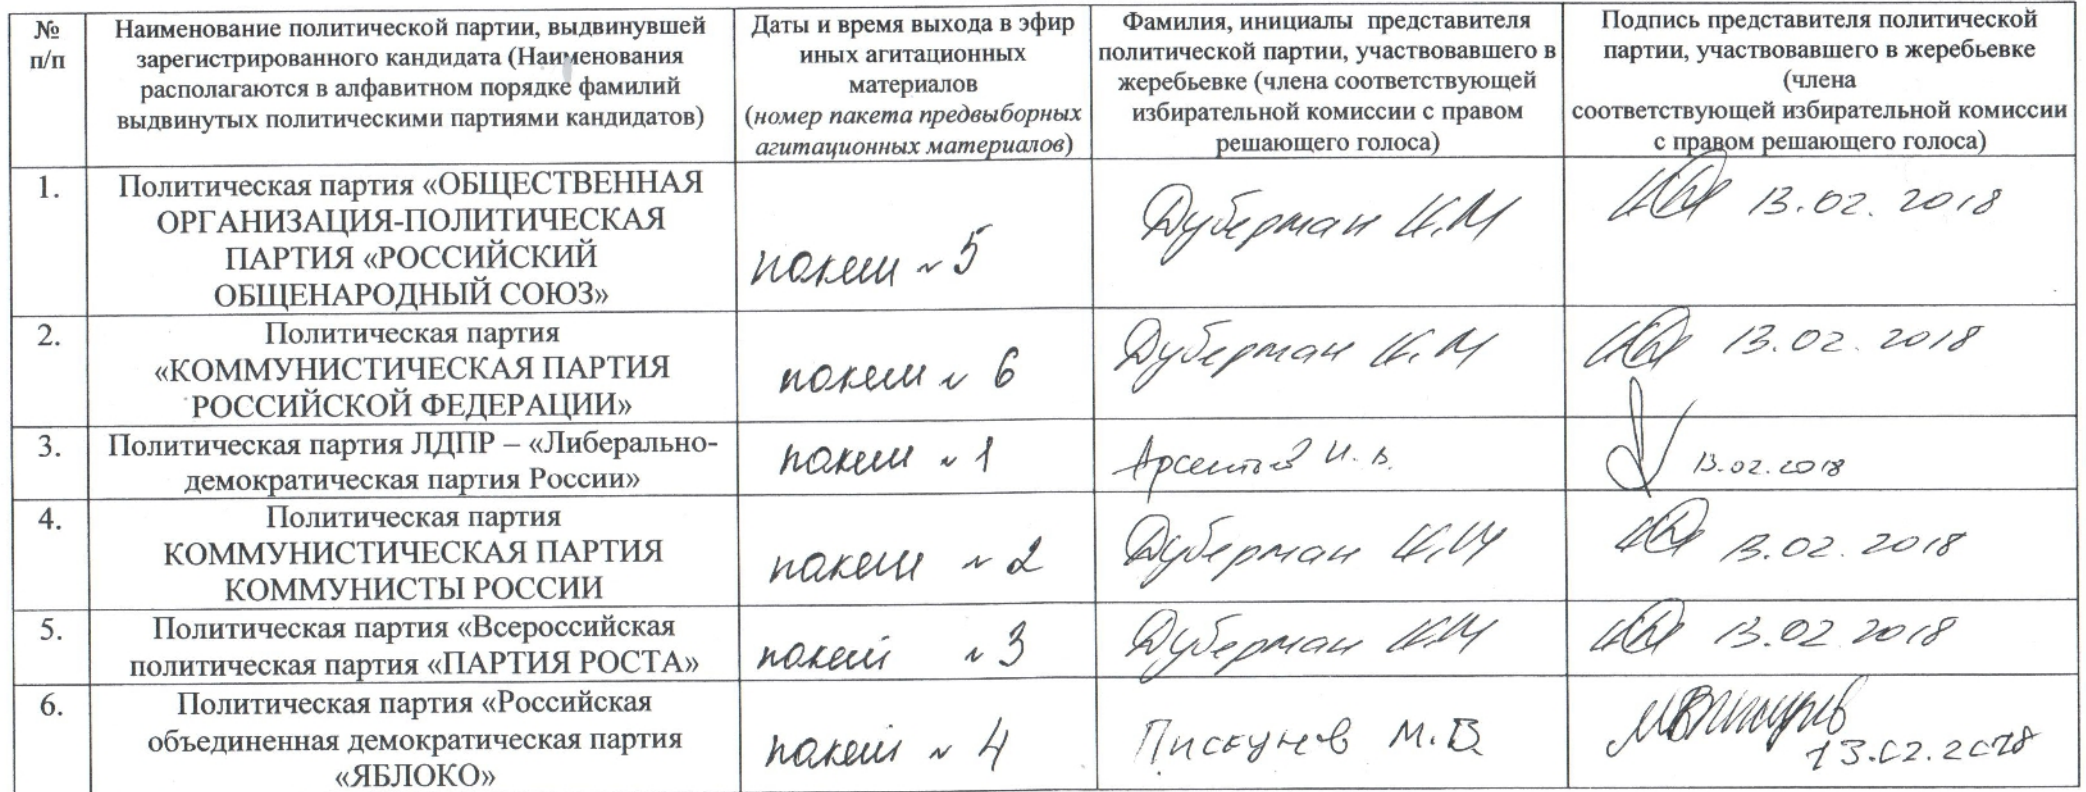 №
п/п
Наименование политической партии, выдвинувшей
зарегистрированного кандидата (Наименования
располагаются в алфавитном порядке фамилий
выдвинутых политическими партиями кандидатов)
Даты и время выхода в эфир
иных агитационных
материалов
(номер пакета предвыборных
агитационных материалов)
Фамилия, инициалы представителя
политической партии, участвовавшего в
жеребьевке (члена соответствующей
избирательной комиссии с правом
решающего голоса)
Подпись представителя политической
партии, участвовавшего в жеребьевке
(члена
соответствующей избирательной комиссии
с правом решающего голоса)
1.
Политическая партия «ОБЩЕСТВЕННАЯ
ОРГАНИЗАЦИЯ-ПОЛИТИЧЕСКАЯ
ПАРТИЯ «РОССИЙСКИЙ
ОБЩЕНАРОДНЫЙ СОЮЗ»
пакет ~ 5
Дуберман К.М
13.02.2018
2.
Политическая партия
«КОММУНИСТИЧЕСКАЯ ПАРТИЯ
РОССИЙСКОЙ ФЕДЕРАЦИИ»
пакет ~ 6
Дуберман К.М
13.02.2018
3.
Политическая партия ЛДПР – «Либерально-
демократическая партия России»
пакет ~ 1
И.В.
13.02.2018
4.
Политическая партия
КОММУНИСТИЧЕСКАЯ ПАРТИЯ
КОММУНИСТЫ РОССИИ
пакет ~ 2
Дуберман К.М
13.02.2018
5.
Политическая партия «Всероссийская
политическая партия «ПАРТИЯ РОСТА»
пакет ~ 3
Дуберман КМ
13.02 2018
6.
Политическая партия «Российская
объединенная демократическая партия
«ЯБЛОКО»
пакет ~ 4
Пискунов М.В.
13.02.2018